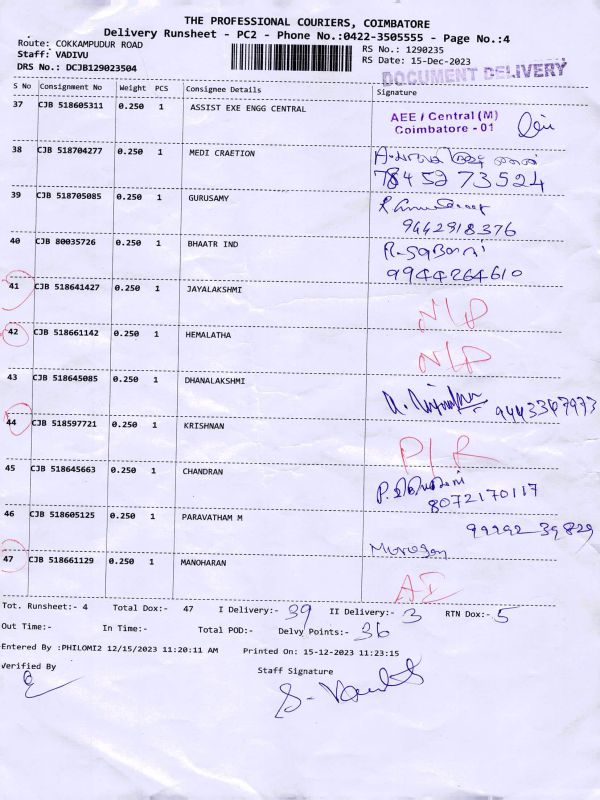 THE PROFESSIONAL COURIERS, COIMBATORE
Delivery Runsheet - PC2 - Phone No.:0422-3505555 - Page No.:4
Route: COKKAMPUDUR ROAD
RS No.: 1290235
Staff: VADIVU
RS Date: 15-Dec-2023
DRS No.: DCJB129023504
DOCUMENT DELIVERY
S No Consignment No Weight PCS Consignee Details Signature
37 CJB 518605311 0.250 1 ASSIST EXE ENGG CENTRAL AEE / Central (M)
Coimbatore - 01
38 CJB 518704277 0.250 1 MEDI CRAETION
78452 73524
39 CJB 518705085 0.250 1 GURUSAMY
9442918376
40 CJB 80035726 0.250 1 BHAATR IND
9944264610
41 CJB 518641427 0.250 1 JAYALAKSHMI
N/P
42 CJB 518661142 0.250 1 HEMALATHA
N/P
43 CJB 518645085 0.250 1 DHANALAKSHMI
9443367973
44 CJB 518597721 0.250 1 KRISHNAN
P/R
45 CJB 518645663 0.250 1 CHANDRAN
8072170117
46 CJB 518605125 0.250 1 PARAVATHAM M
99292 39829
Murugan
47 CJB 518661129 0.250 1 MANOHARAN
Tot. Runsheet:- 4 Total Dox:- 47 I Delivery:- 39 II Delivery:- 3 RTN Dox:- 5
Out Time:- In Time:- Total POD:- Delvy Points:- 36
Entered By :PHILOMI2 12/15/2023 11:20:11 AM Printed On: 15-12-2023 11:23:15
Verified By Staff Signature